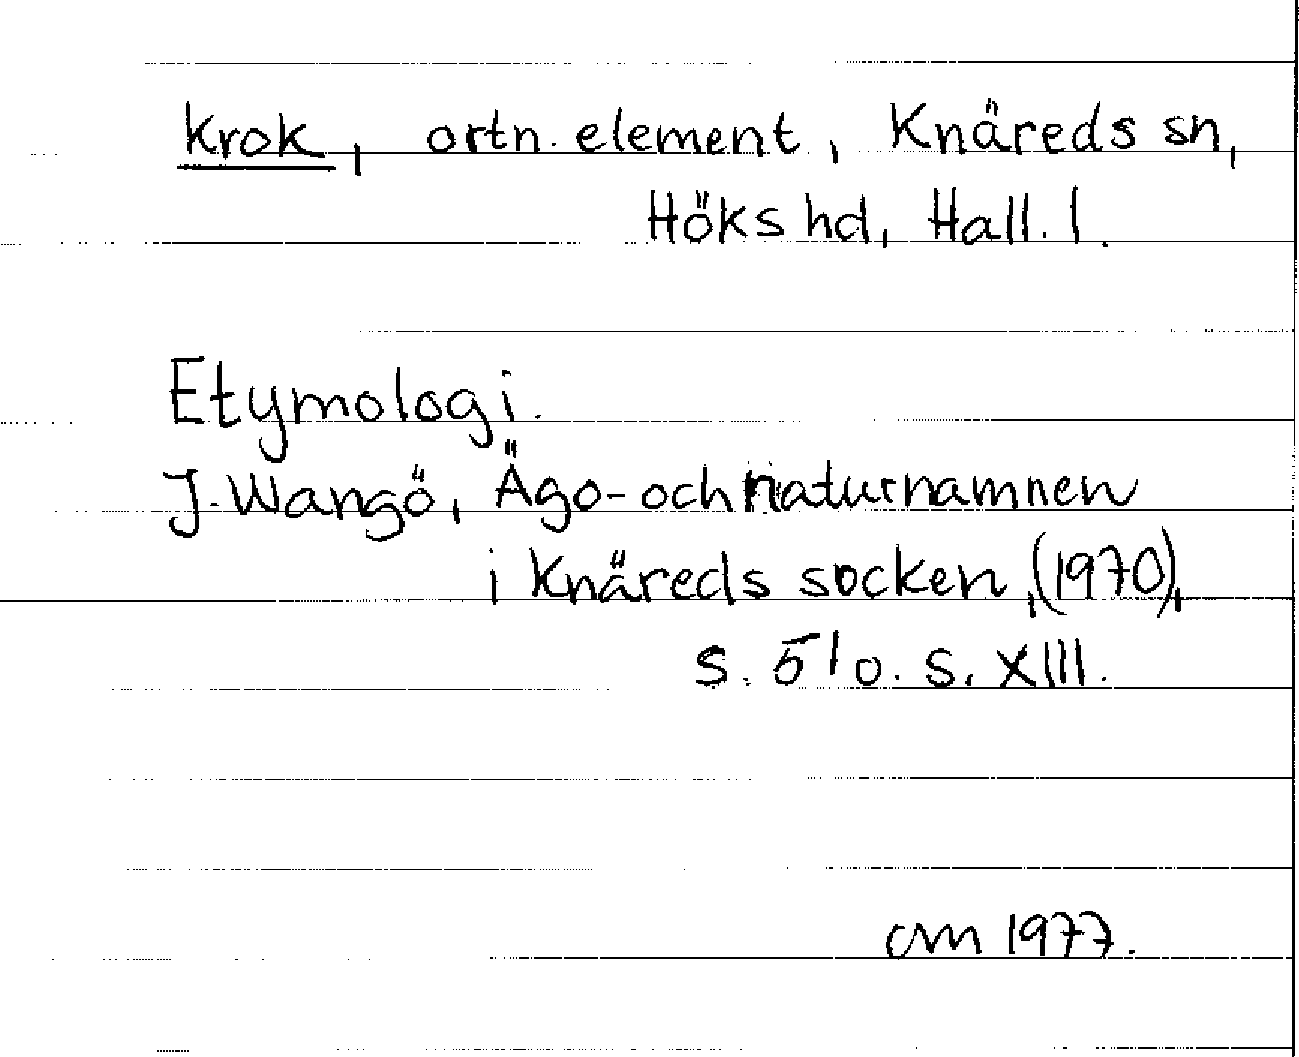 krok, ortn. element, Knäreds sn,
Höks hd, Hall. l.
Etymologi.
J. Wangö, Ägo- och naturnamnen
i Knäreds socken, (1970),
s. 51 o. s. XIII.
cm 1977.